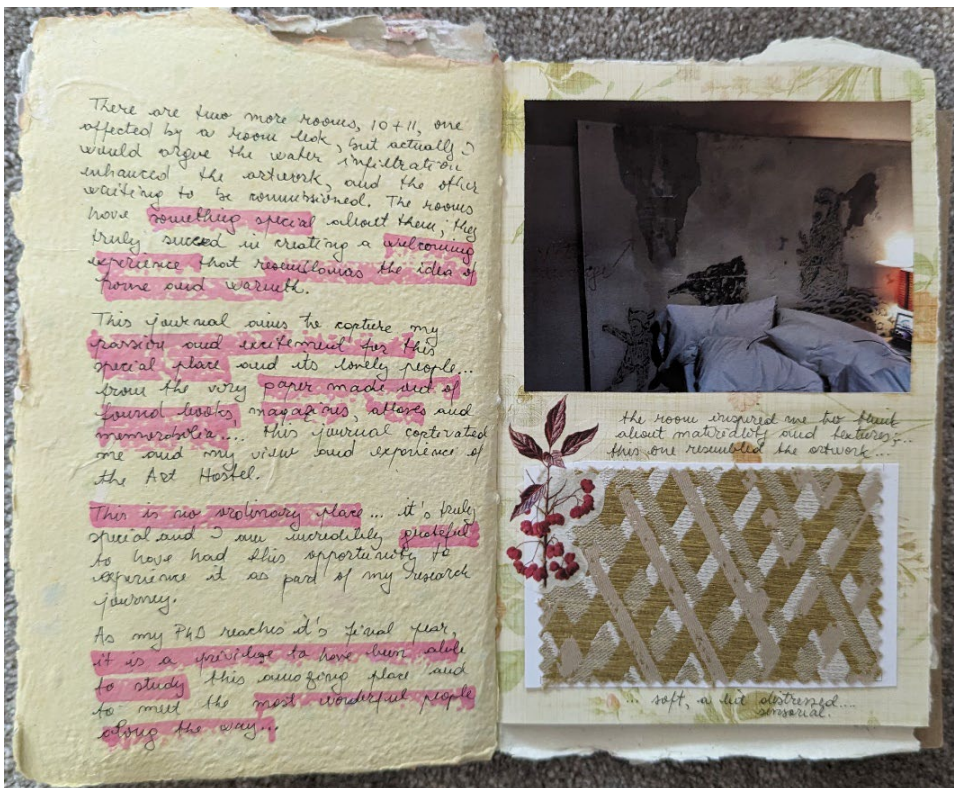 There are two more rooms, 10 + 11, one
affected by a room leak, but actually I
would argue the water infiltration
enhanced the artwork, and the other
waiting to be commissioned. The rooms
have something special about them; they
truly succed in creating a welcoming
experience that resembles the idea of
home and warmth.
This journal aims to capture my
passion and excitement for this
special place and its lovely people...
from the very paper made out of
found books, magazines, and
memorobilia.... this journal captivated
me and my view and experience of
the Art Hostel.
This is no ordinary place... it's truly
special and I am incredibly grateful
to have had this opportunity to
experience it as part of my research
journey.
As my PhD reaches it's final year,
it is a privilege to have been able
to study this amazing place and
to meet the most wonderful people
along the way...
the room inspired me to think
about materiality and textures;...
this one resembled the artwork...
... soft, a bit distressed....
sensorial.